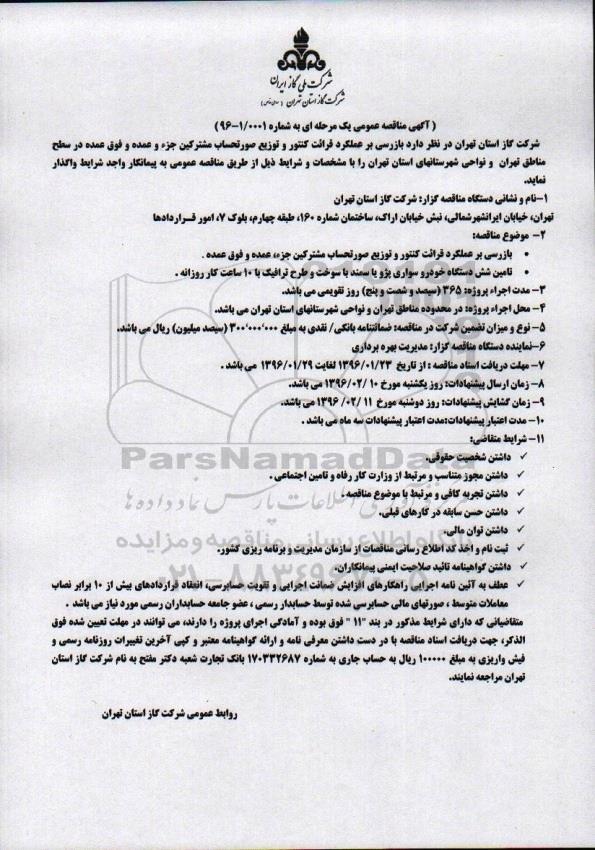 شرکت ملی گاز ایران
شرکت گاز استان تهران
( آگهی مناقصه عمومی یک مرحله ای به شماره ۹۶-۱/۰۰۰۱ )
شرکت گاز استان تهران در نظر دارد بازرسی بر عملکرد قرائت کنتور و توزیع صورتحساب مشترکین جزء و عمده و فوق عمده در سطح
مناطق تهران و نواحی شهرستانهای استان تهران را با مشخصات و شرایط ذیل از طریق مناقصه عمومی به پیمانکار واجد شرایط واگذار
نماید.
۱-نام و نشانی دستگاه مناقصه گزار: شرکت گاز استان تهران
تهران، خیابان ایرانشهرشمالی، نبش خیابان اراک، ساختمان شماره ۱۶۰، طبقه چهارم، بلوک ۷، امور قـراردادها
۲- موضوع مناقصه:
• بازرسی بر عملکرد قرائت کنتور و توزیع صورتحساب مشترکین جزء، عمده و فوق عمده .
• تامین شش دستگاه خودرو سواری پژو یا سمند با سوخت و طرح ترافیک با ۱۰ ساعت کار روزانه .
۳- مدت اجراء پروژه: ۳۶۵ (سیصد و شصت و پنج) روز تقویمی می باشد.
۴- محل اجراء پروژه: در محدوده مناطق تهران و نواحی شهرستانهای استان تهران می باشد.
۵- نوع و میزان تضمین شرکت در مناقصه: ضمانتنامه بانکی/ نقدی به مبلغ ۳۰۰٬۰۰۰٬۰۰۰ (سیصد میلیون) ریال می باشد.
۶-نماینده دستگاه مناقصه گزار: مدیریت بهره برداری
۷- مهلت دریافت اسناد مناقصه : از تاریخ ۱۳۹۶/۰۱/۲۳ لغایت ۱۳۹۶/۰۱/۲۹ می باشد .
۸- زمان ارسال پیشنهادات: روز یکشنبه مورخ ۱۰ /۱۳۹۶/۰۲ می باشد.
۹- زمان گشایش پیشنهادات: روز دوشنبه مورخ ۱۱ /۰۲/ ۱۳۹۶ می باشد.
۱۰- مدت اعتبار پیشنهادات:مدت اعتبار پیشنهادات سه ماه می باشد .
۱۱- شرایط متقاضی:
✓ داشتن شخصیت حقوقی.
✓ داشتن مجوز متناسب و مرتبط از وزارت کار رفاه و تامین اجتماعی .
✓ داشتن تجربه کافی و مرتبط با موضوع مناقصه .
✓ داشتن حسن سابقه در کارهای قبلی.
✓ داشتن توان مالی.
✓ ثبت نام و اخذ کد اطلاع رسانی مناقصات از سازمان مدیریت و برنامه ریزی کشور.
✓ داشتن گواهینامه تائید صلاحیت ایمنی پیمانکاران.
✓ عطف به آئین نامه اجرایی راهکارهای افزایش ضمانت اجرایی و تقویت حسابرسی، انعقاد قراردادهای بیش از ۱۰ برابر نصاب
معاملات متوسط ، صورتهای مالی حسابرسی شده توسط حسابدار رسمی ، عضو جامعه حسابداران رسمی مورد نیاز می باشد .
متقاضیانی که دارای شرایط مذکور در بند "۱۱" فوق بوده و آمادگی اجرای پروژه را دارند، می توانند در مهلت تعیین شده فوق
الذکر، جهت دریافت اسناد مناقصه با در دست داشتن معرفی نامه و ارائه گواهینامه معتبر و کپی آخرین تغییرات روزنامه رسمی و
فیش واریزی به مبلغ ۱۰۰۰۰۰ ریال به حساب جاری به شماره ۱۷۰۳۳۲۶۸۷ بانک تجارت شعبه دکتر مفتح به نام شرکت گاز استان
تهران مراجعه نمایند.
روابط عمومی شرکت گاز استان تهران
ParsNamadData
پایگاه اطلاع رسانی مناقصه و مزایده